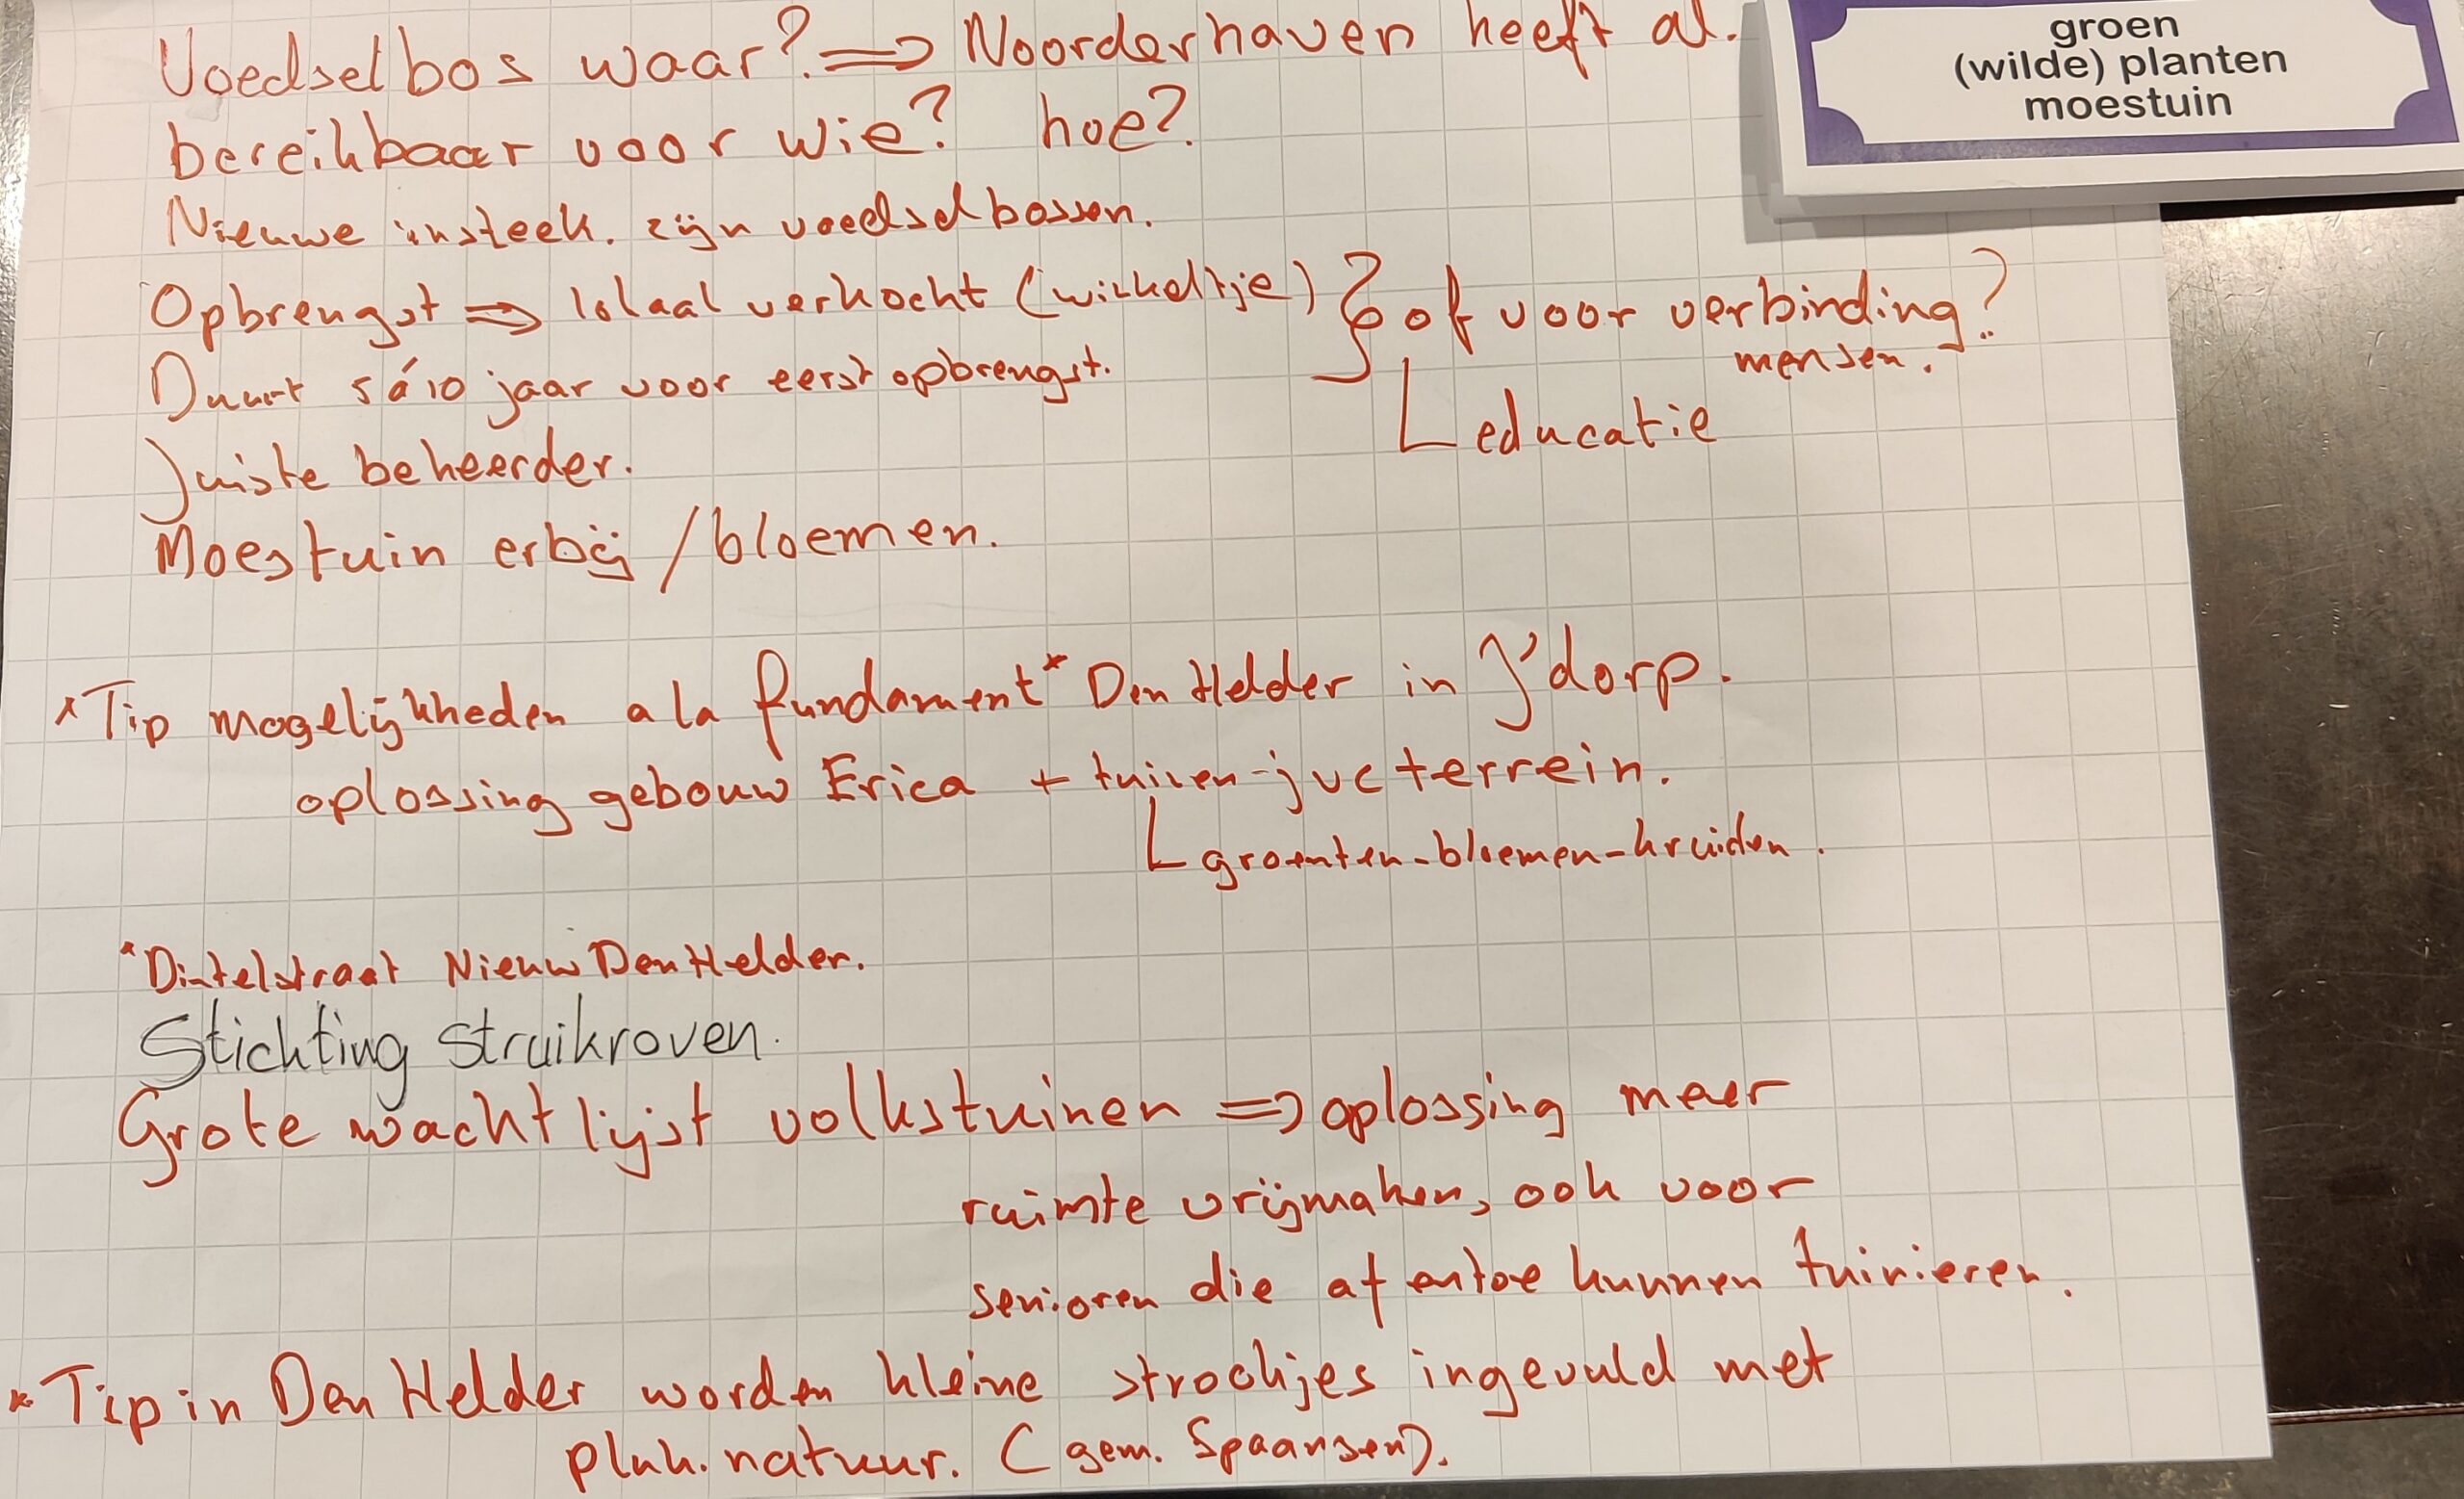 groen
(wilde) planten
moestuin
Voedselbos waar? => Noorderhaven heeft al.
bereikbaar voor wie? hoe?
Nieuwe insteek. zijn voedselbossen.
Opbrengst => lokaal verkocht (winkeltje) } of voor verbinding?
mensen.
Duurt 5 á 10 jaar voor eerst opbrengst.
educatie
Juiste beheerder.
Moestuin erbij / bloemen.
*Tip mogelijkheden a la fundament* Den Helder in J'dorp.
oplossing gebouw Erica + tuinen-jvc terrein.
groenten-bloemen-kruiden.
*Dintelstraat Nieuw Den Helder.
Stichting Struikroven.
Grote wachtlijst volkstuinen => oplossing meer
ruimte vrijmaken, ook voor
senioren die af en toe kunnen tuinieren.
*Tip in Den Helder worden kleine strookjes ingevuld met
pluk. natuur. (gem. Spaansen).